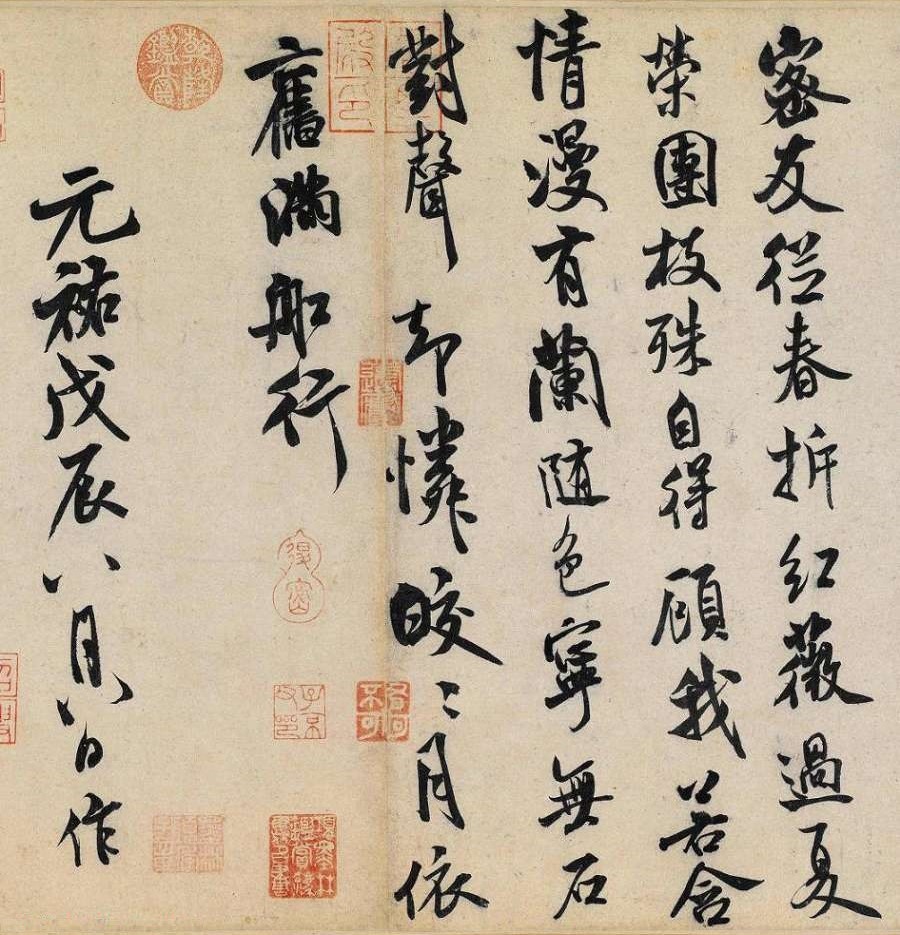 密友從春拆紅薇過夏
榮團枝殊自得顧我若含
情漫有蘭随色寧無石
對聲却憐皎〻月依
舊滿船行
元祐戊辰八月八日作